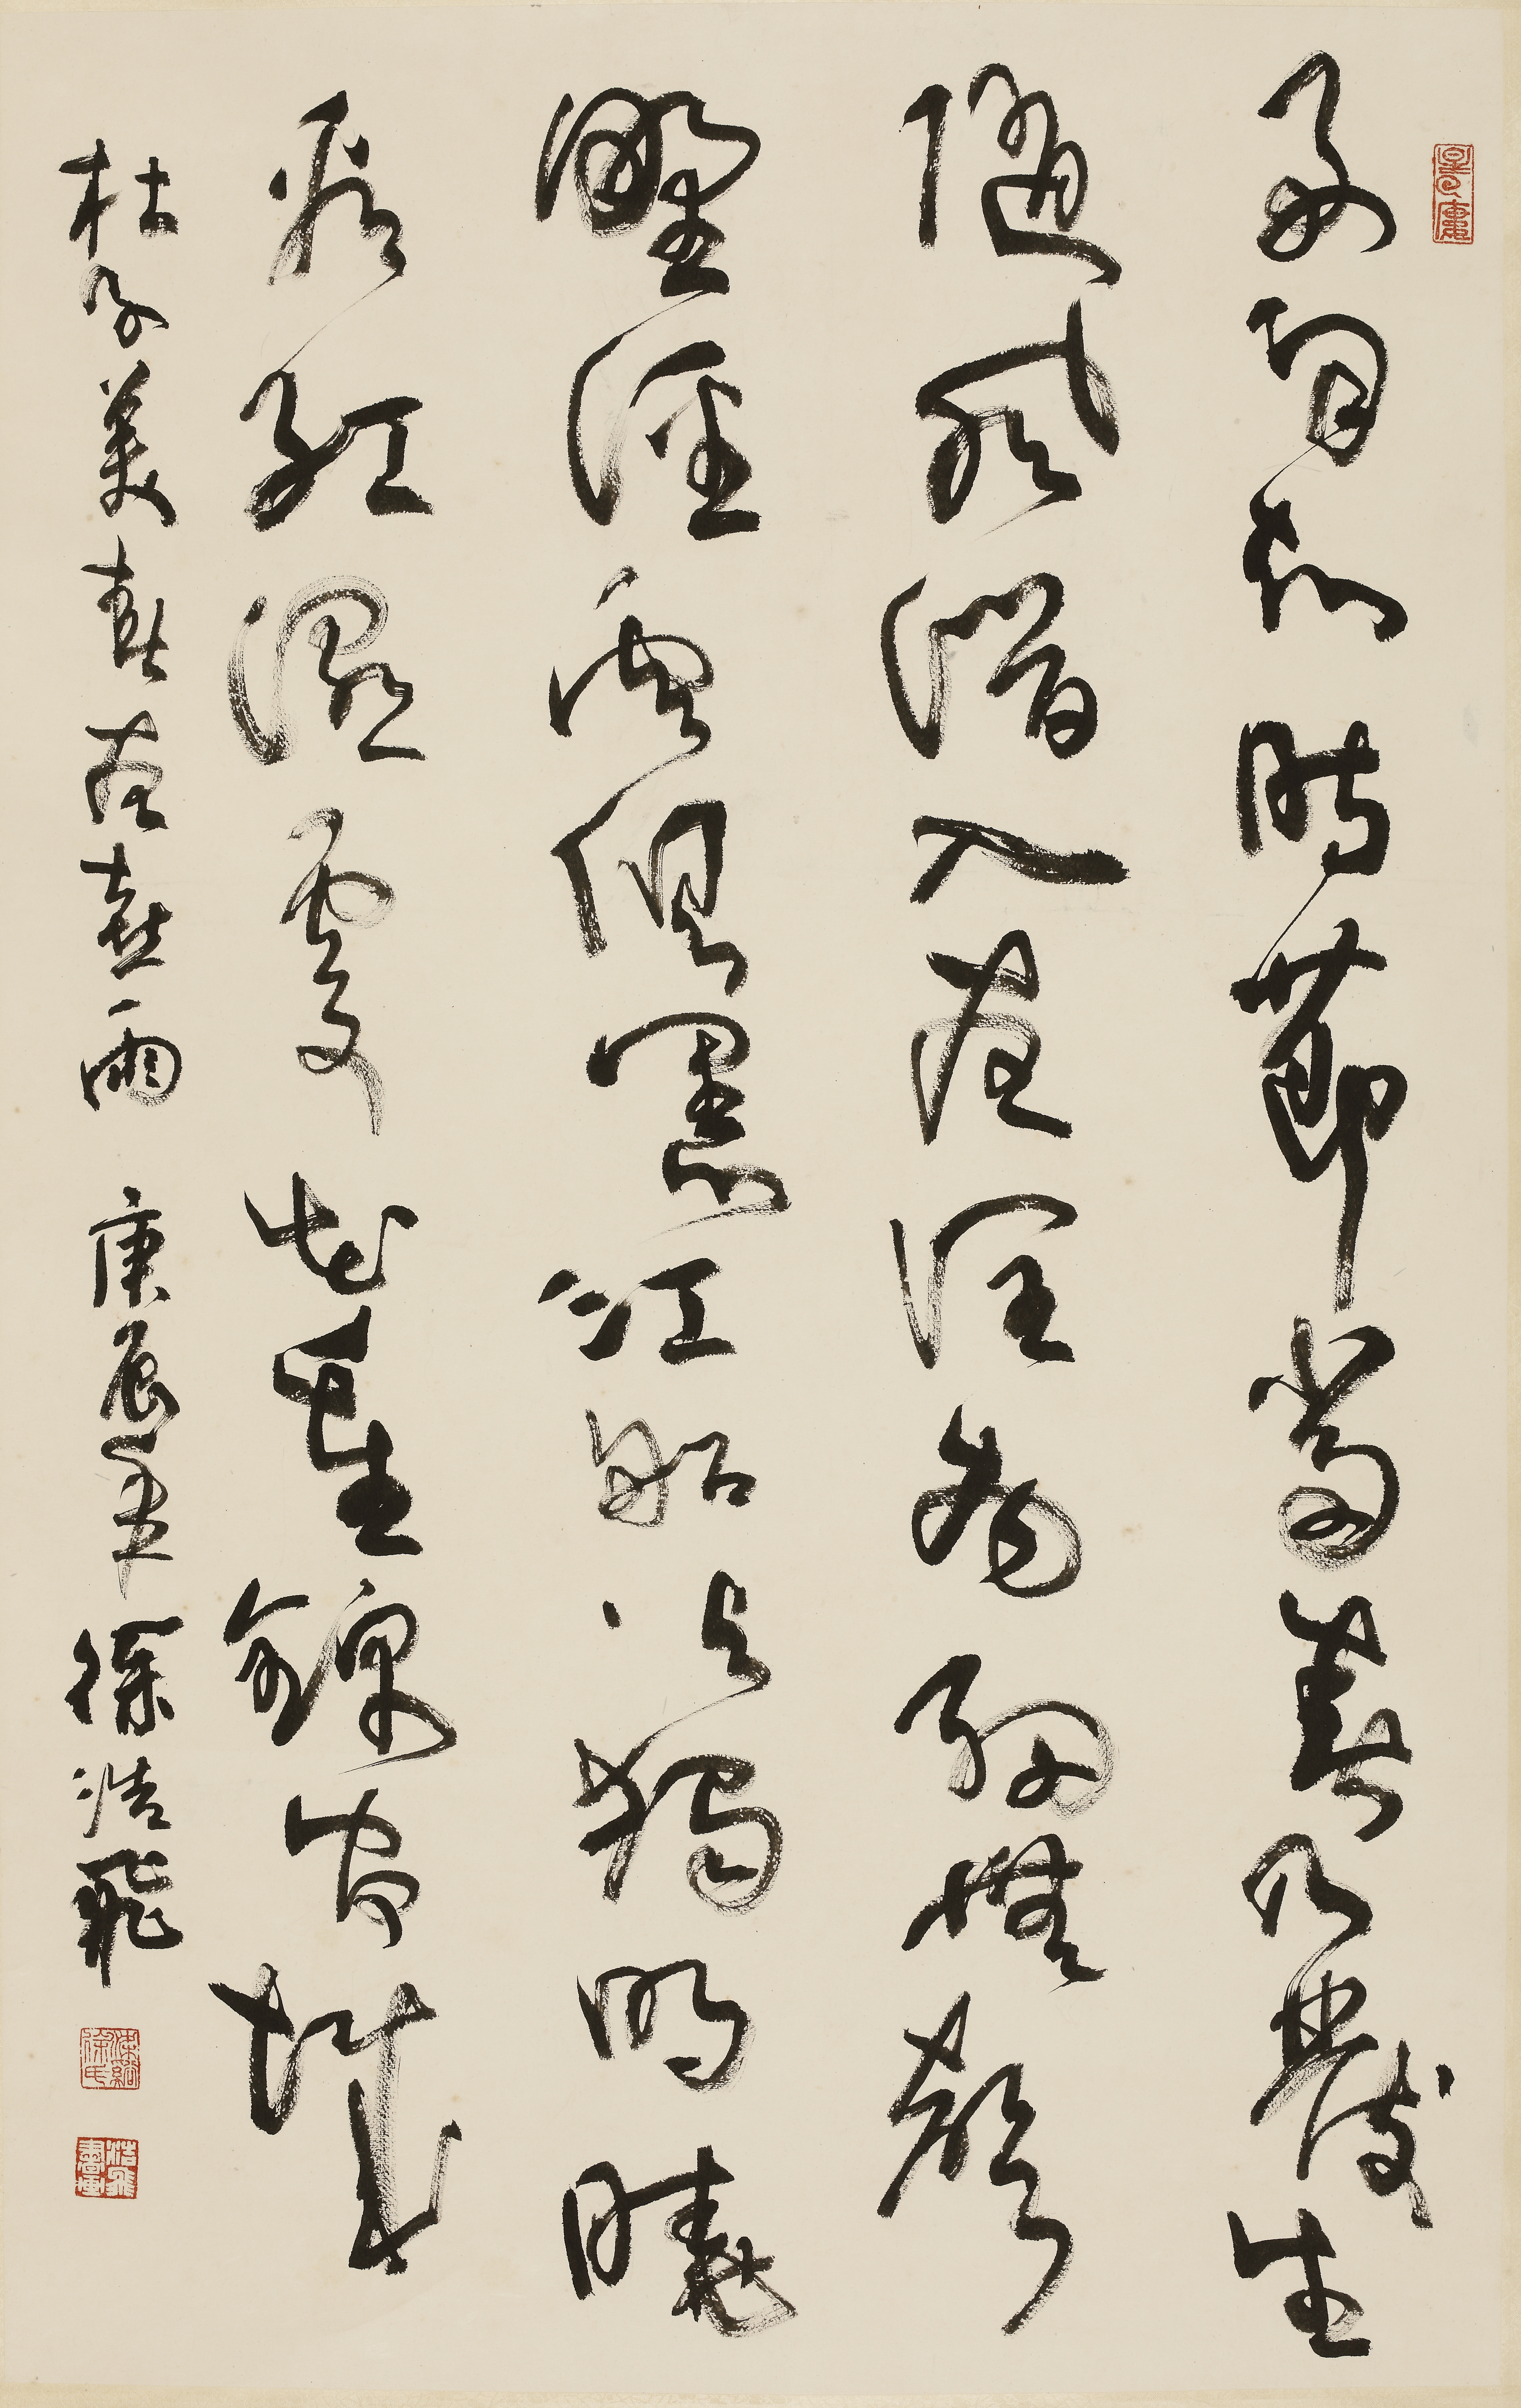 好雨知時節當春乃發生
隨風潛入夜潤物細無聲
野徑雲俱黑江船火獨明曉
看紅濕處花重錦官城
杜子美春夜喜雨 庚辰年 徐浩飛
浩飛書畫